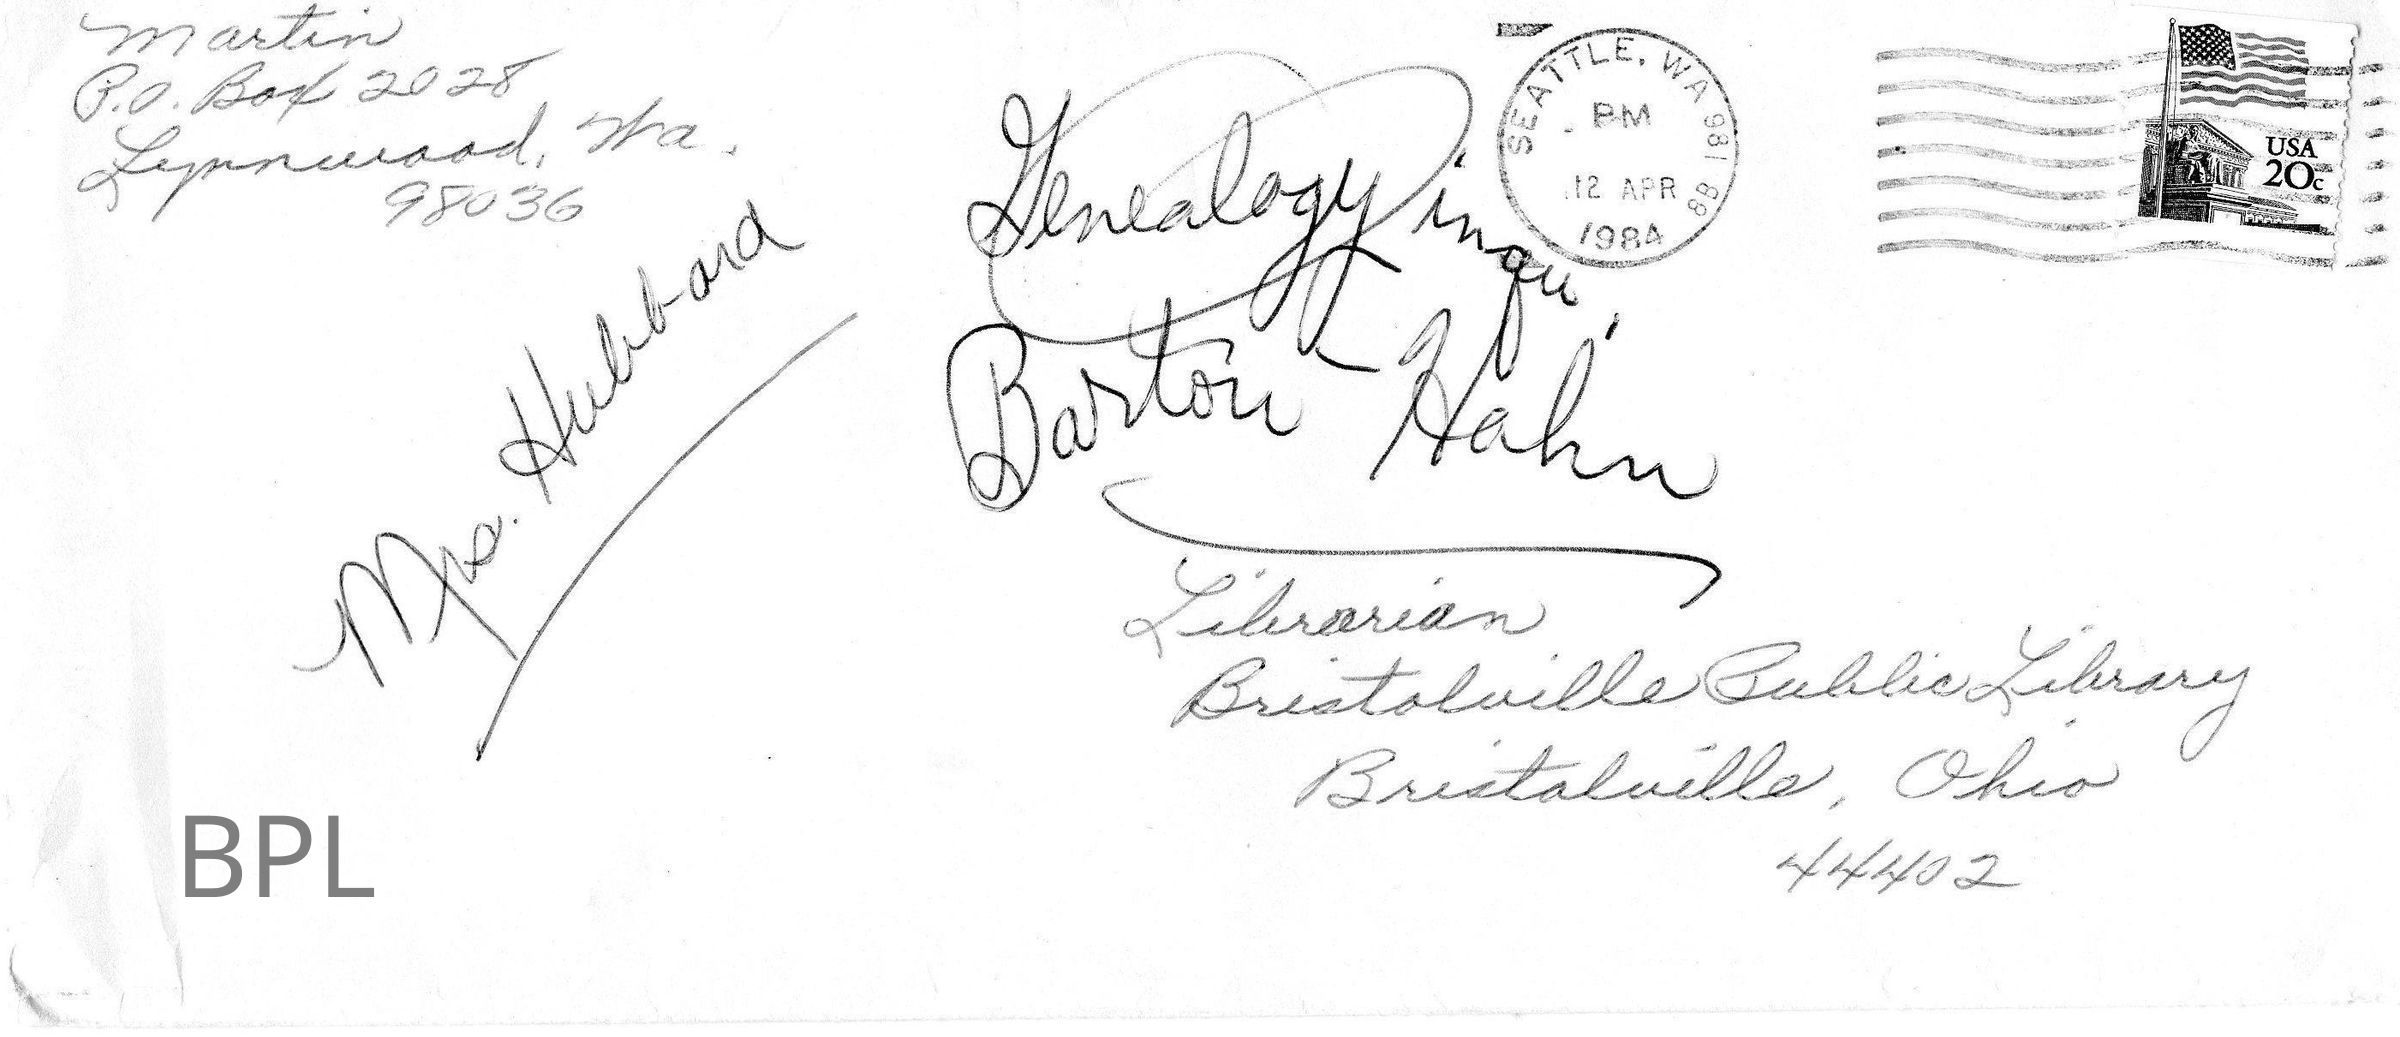 Martin
P.O. Box 2028
Lynnwood, Wa.
98036
SEATTLE, WA 981 88
PM
12 APR
1984
USA
20c
Genealogy inqu.
Barton Hahn
Mrs. Hubbard
Librarian
Bristolville Public Library
Bristolville, Ohio
44402
BPL